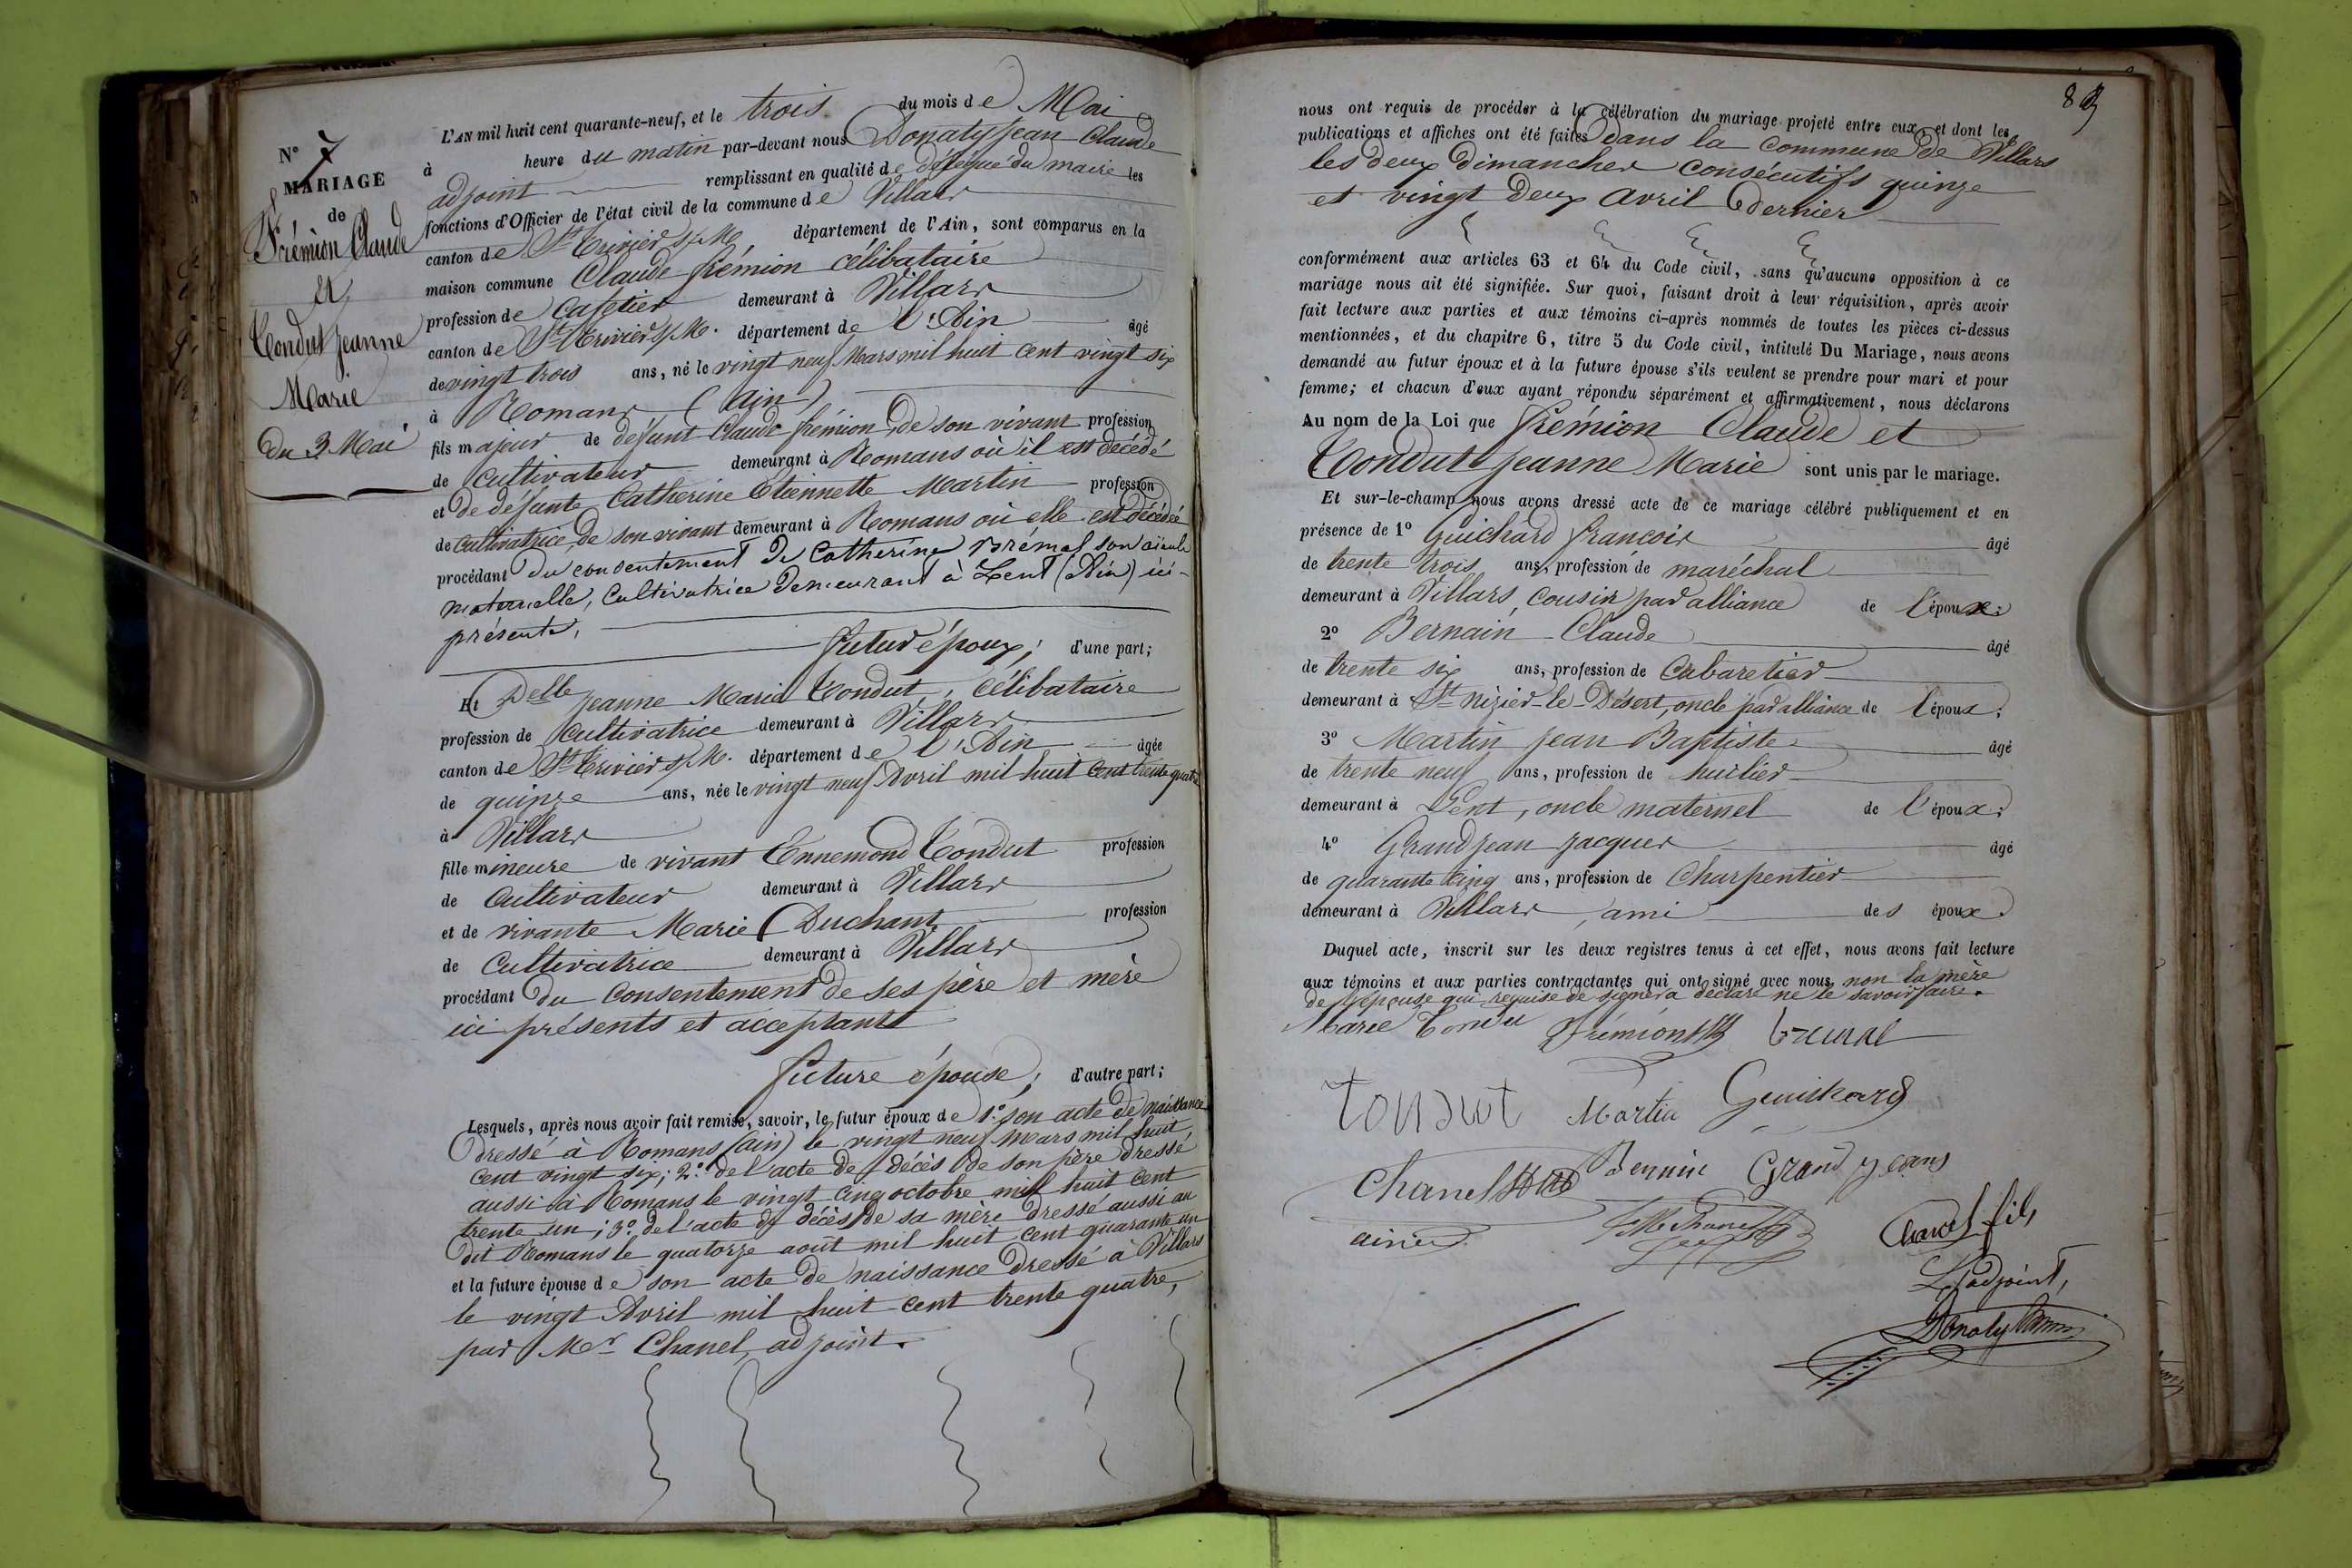 N° 7
MARIAGE
de
Frémion Claude
et
Tondut Jeanne
Marie
du 3 Mai
L'AN mil huit cent quarante-neuf, et le trois du mois de Mai
à heure du matin par-devant nous Donaty Jean Claude
adjoint remplissant en qualité de délégué du maire les
fonctions d'Officier de l'état civil de la commune de Villars
canton de St Trivier s/M. département de l'Ain, sont comparus en la
maison commune Claude frémion célibataire
profession de Cafetier demeurant à Villars
canton de St Trivier s/M. département de l'Ain âgé
de vingt trois ans, né le vingt neuf Mars mil huit cent vingt six
à Romans (Ain)
fils majeur de défunt Claude frémion, de son vivant profession
de Cultivateur demeurant à Romans où il est décédé
et de défunte Catherine Etiennette Martin profession
de Cultivatrice, de son vivant demeurant à Romans où elle est décédée
procédant du consentement de Catherine son aïeule
maternelle, Cultivatrice demeurant à Lent (Ain) ici-
présente,
futur époux; d'une part;
Et Delle Jeanne Marie Tondut, célibataire
profession de Cultivatrice demeurant à Villars
canton de St Trivier s/M. département de l'Ain âgée
de quinze ans, née le vingt neuf Avril mil huit cent trente quatre
à Villars
fille mineure de vivant Ennemond Tondut profession
de Cultivateur demeurant à Villars
et de vivante Marie Duchant profession
de Cultivatrice demeurant à Villars
procédant du consentement de ses père et mère
ici présents et acceptants
future épouse; d'autre part;
Lesquels, après nous avoir fait remise, savoir, le futur époux de 1° son acte de naissance
dressé à Romans (Ain) le vingt neuf Mars mil huit
cent vingt six; 2° de l'acte de décès de son père dressé
aussi à Romans le vingt cinq octobre mil huit cent
trente un; 3° de l'acte de décès de sa mère dressé aussi au
dit Romans le quatorze août mil huit cent quarante un
et la future épouse de son acte de naissance dressé à Villars
le vingt Avril mil huit cent trente quatre,
par Mr Chanel, adjoint.
nous ont requis de procéder à la célébration du mariage projeté entre eux, et dont les
publications et affiches ont été faites dans la Commune de Villars
les deux dimanches consécutifs quinze
et vingt deux avril dernier
conformément aux articles 63 et 64 du Code civil, sans qu'aucune opposition à ce
mariage nous ait été signifiée. Sur quoi, faisant droit à leur réquisition, après avoir
fait lecture aux parties et aux témoins ci-après nommés de toutes les pièces ci-dessus
mentionnées, et du chapitre 6, titre 5 du Code civil, intitulé Du Mariage, nous avons
demandé au futur époux et à la future épouse s'ils veulent se prendre pour mari et pour
femme; et chacun d'eux ayant répondu séparément et affirmativement, nous déclarons
Au nom de la Loi que frémion Claude et
Tondut Jeanne Marie sont unis par le mariage.
Et sur-le-champ nous avons dressé acte de ce mariage célébré publiquement et en
présence de 1° Guichard françois âgé
de trente trois ans, profession de maréchal
demeurant à Villars, cousin par alliance de l'époux;
2° Bernain Claude âgé
de trente six ans, profession de Cabaretier
demeurant à St Nizier-le-Désert, oncle par alliance de l'époux;
3° Martin Jean Baptiste âgé
de trente neuf ans, profession de huilier
demeurant à Lent, oncle maternel de l'époux;
4° Grandjean Jacques âgé
de quarante cinq ans, profession de Charpentier
demeurant à Villars, ami des époux
Duquel acte, inscrit sur les deux registres tenus à cet effet, nous avons fait lecture
aux témoins et aux parties contractantes qui ont signé avec nous, non la mère
de l'épouse qui requise de signer a déclaré ne le savoir faire.
Marie Tondu Frémion
Tondut Martin Guichard
Chanel Bernin Grand jean
ainé Chanel fils
L'adjoint,
Donaty